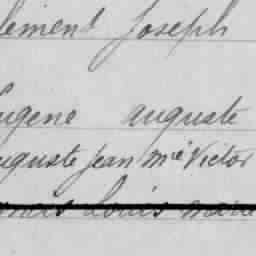 lement Joseph
ugene auguste
uguste Jean Mie Victor
Louis Marie